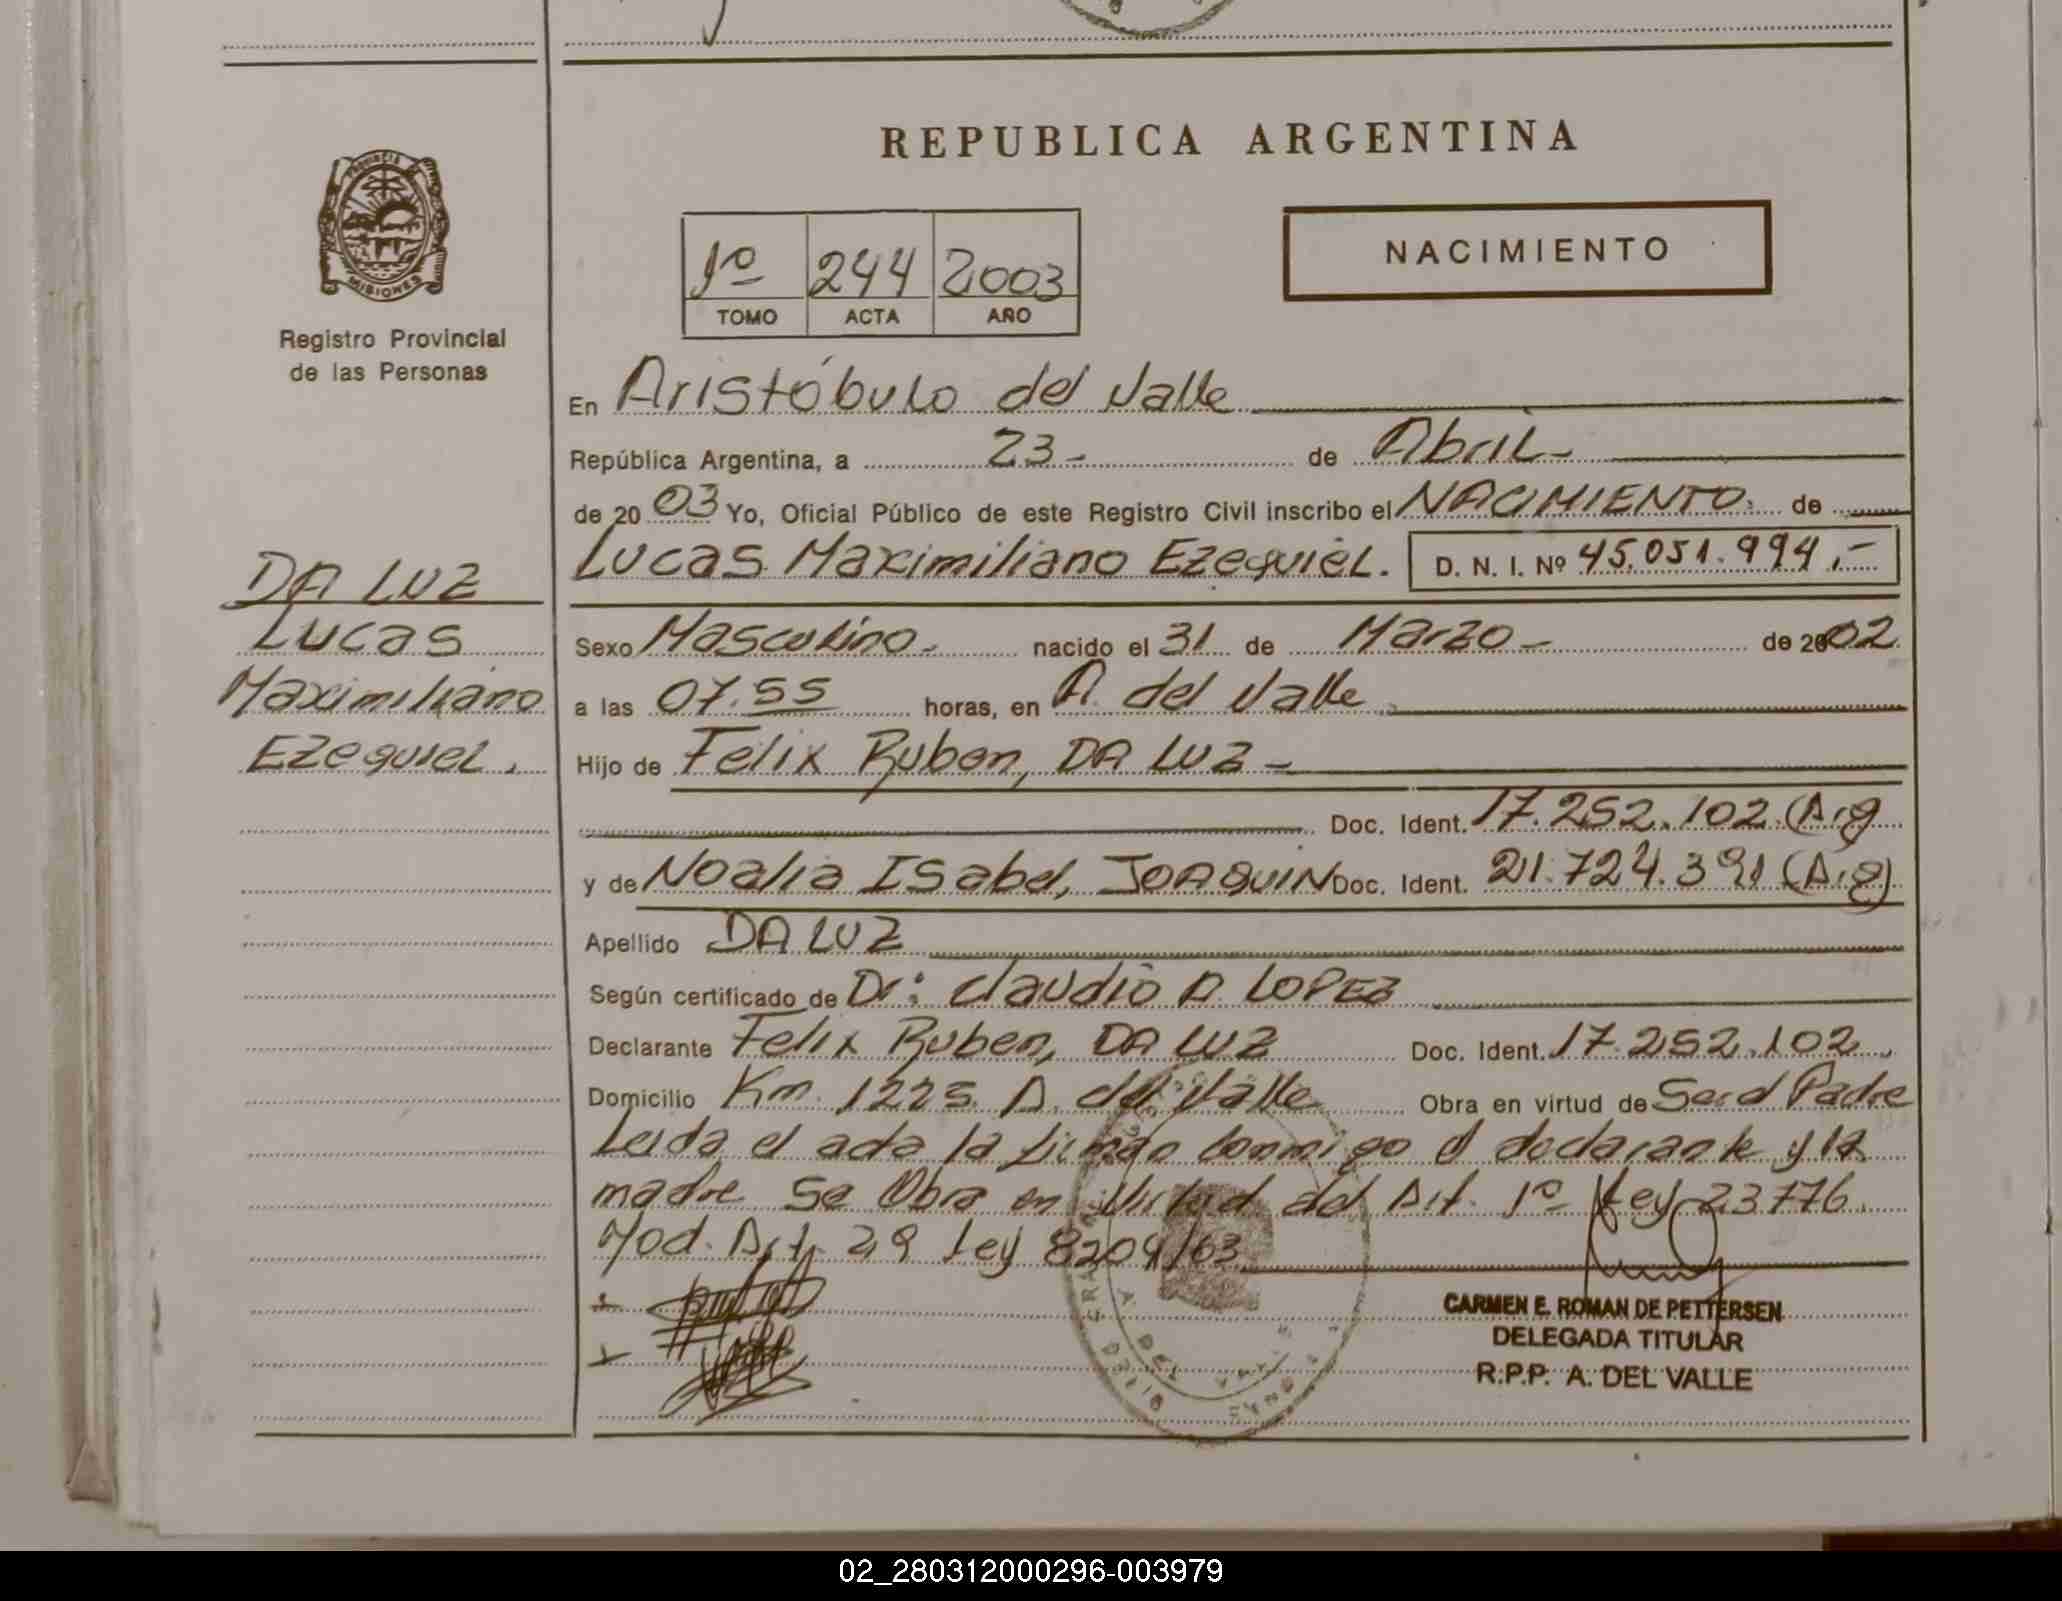 REPUBLICA ARGENTINA
PROVINCIA
MISIONES
Registro Provincial
de las Personas
1º 244 2003
TOMO ACTA AÑO
NACIMIENTO
En Aristóbulo del Valle
República Argentina, a 23 - de Abril -
de 20 03 Yo, Oficial Público de este Registro Civil inscribo el NACIMIENTO de
Lucas Maximiliano Ezequiel. D. N. I. Nº 45.051.994,-
DA LUZ
Lucas
Maximiliano
Ezequiel.
Sexo Masculino - nacido el 31 de Marzo - de 2002
a las 07.55 horas, en A. del Valle
Hijo de Felix Ruben, DA LUZ -
Doc. Ident. 17.252.102 (Arg
y de Noalia Isabel, JOAQUIN Doc. Ident. 21.724.391 (Arg)
Apellido DA LUZ
Según certificado de Dr: Claudio A. LOPEZ
Declarante Felix Ruben, DA LUZ Doc. Ident. 17.252.102
Domicilio Km. 1225 A. del Valle Obra en virtud de Ser el Padre
Leida el acta la firman conmigo el declarante y la
madre Se Obra en Virtud del Art. 1º Ley 23776
Mod. Art. 29 Ley 8204/63
CARMEN E. ROMAN DE PETTERSEN
DELEGADA TITULAR
R.P.P. A. DEL VALLE
A. DEL VALLE
02_280312000296-003979